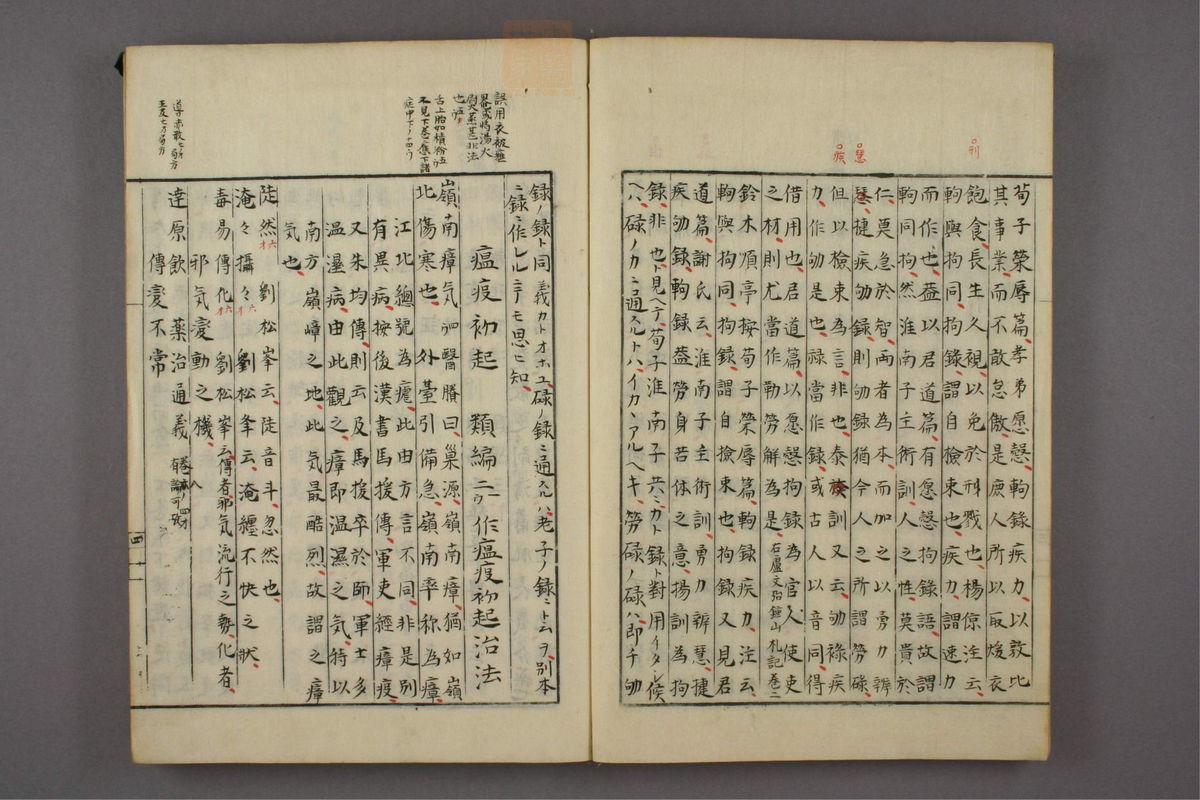 荀子榮辱篇孝弟愿愨軥録疾力以敦比
其事業而不敢怠傲是庶人所以取煖衣
飽食長生久視以免於刑戮也楊倞注云
軥與拘同拘録謂自檢束也疾力謂速力
而作也蓋以君道篇有愿愨拘録語故謂
軥同拘然淮南子主術訓人之性莫貴於
仁莫急於智両者為本而加之以勇力辨
慧捷疾劬録則劬録猶今人之所謂労碌
但以檢束為言非也泰族訓又云劬祿疾
力作劬是也禄當作録或古人以音同得
借用也君道篇以愿愨拘録為官人使吏
之材則尤當作勤労解為是 札記巻二
鈴木順亭按荀子榮辱篇軥録疾力注云
軥與拘同拘録謂自檢束也拘録又見君
道篇謝氏云淮南子主術訓勇力辨慧捷
疾劬録軥録蓋労身苦体之意揚訓為拘
録非也ト見ヘテ荀子淮南子共ニカト録ト對用イタレ候
ヘハ碌ノカニ通スルトハイカヽアルヘキ労碌ノ碌ハ即チ劬
○刑
○慧
○族
録ノ録ト同義カトオホユ碌ノ録ニ通スルハ老子ノ録ニト云ヲ別本
ニ録ニ作レルニテモ思ヒ知
瘟疫初起 類編二ウ作瘟疫初起治法
嶺南瘴気 醫賸曰巢源嶺南瘴猶如嶺
北傷寒也外臺引備急嶺南率称為瘴
江北總號為瘧此由方言不同非是別
有異病按後漢書馬援傳軍吏經瘴疫
又朱均傳則云及馬援卒於師軍士多
温濕病由此觀之瘴即温濕之気特以
南方嶺嶂之地此気最酷烈故謂之瘴
気也
陡然 劉松峯云陡音斗忽然也
淹々攝々 劉松峯云淹纏不快之状
毒易傳化 劉松峯云傳者邪気流行之勢化者
邪気変動之機
達原飲 薬治通義
傳変不常
誤用衣被壅
器或將湯火
熨蒸甚非法
也
舌上胎如積粉
見下巻
症中
導赤散 局方
五皮 局方